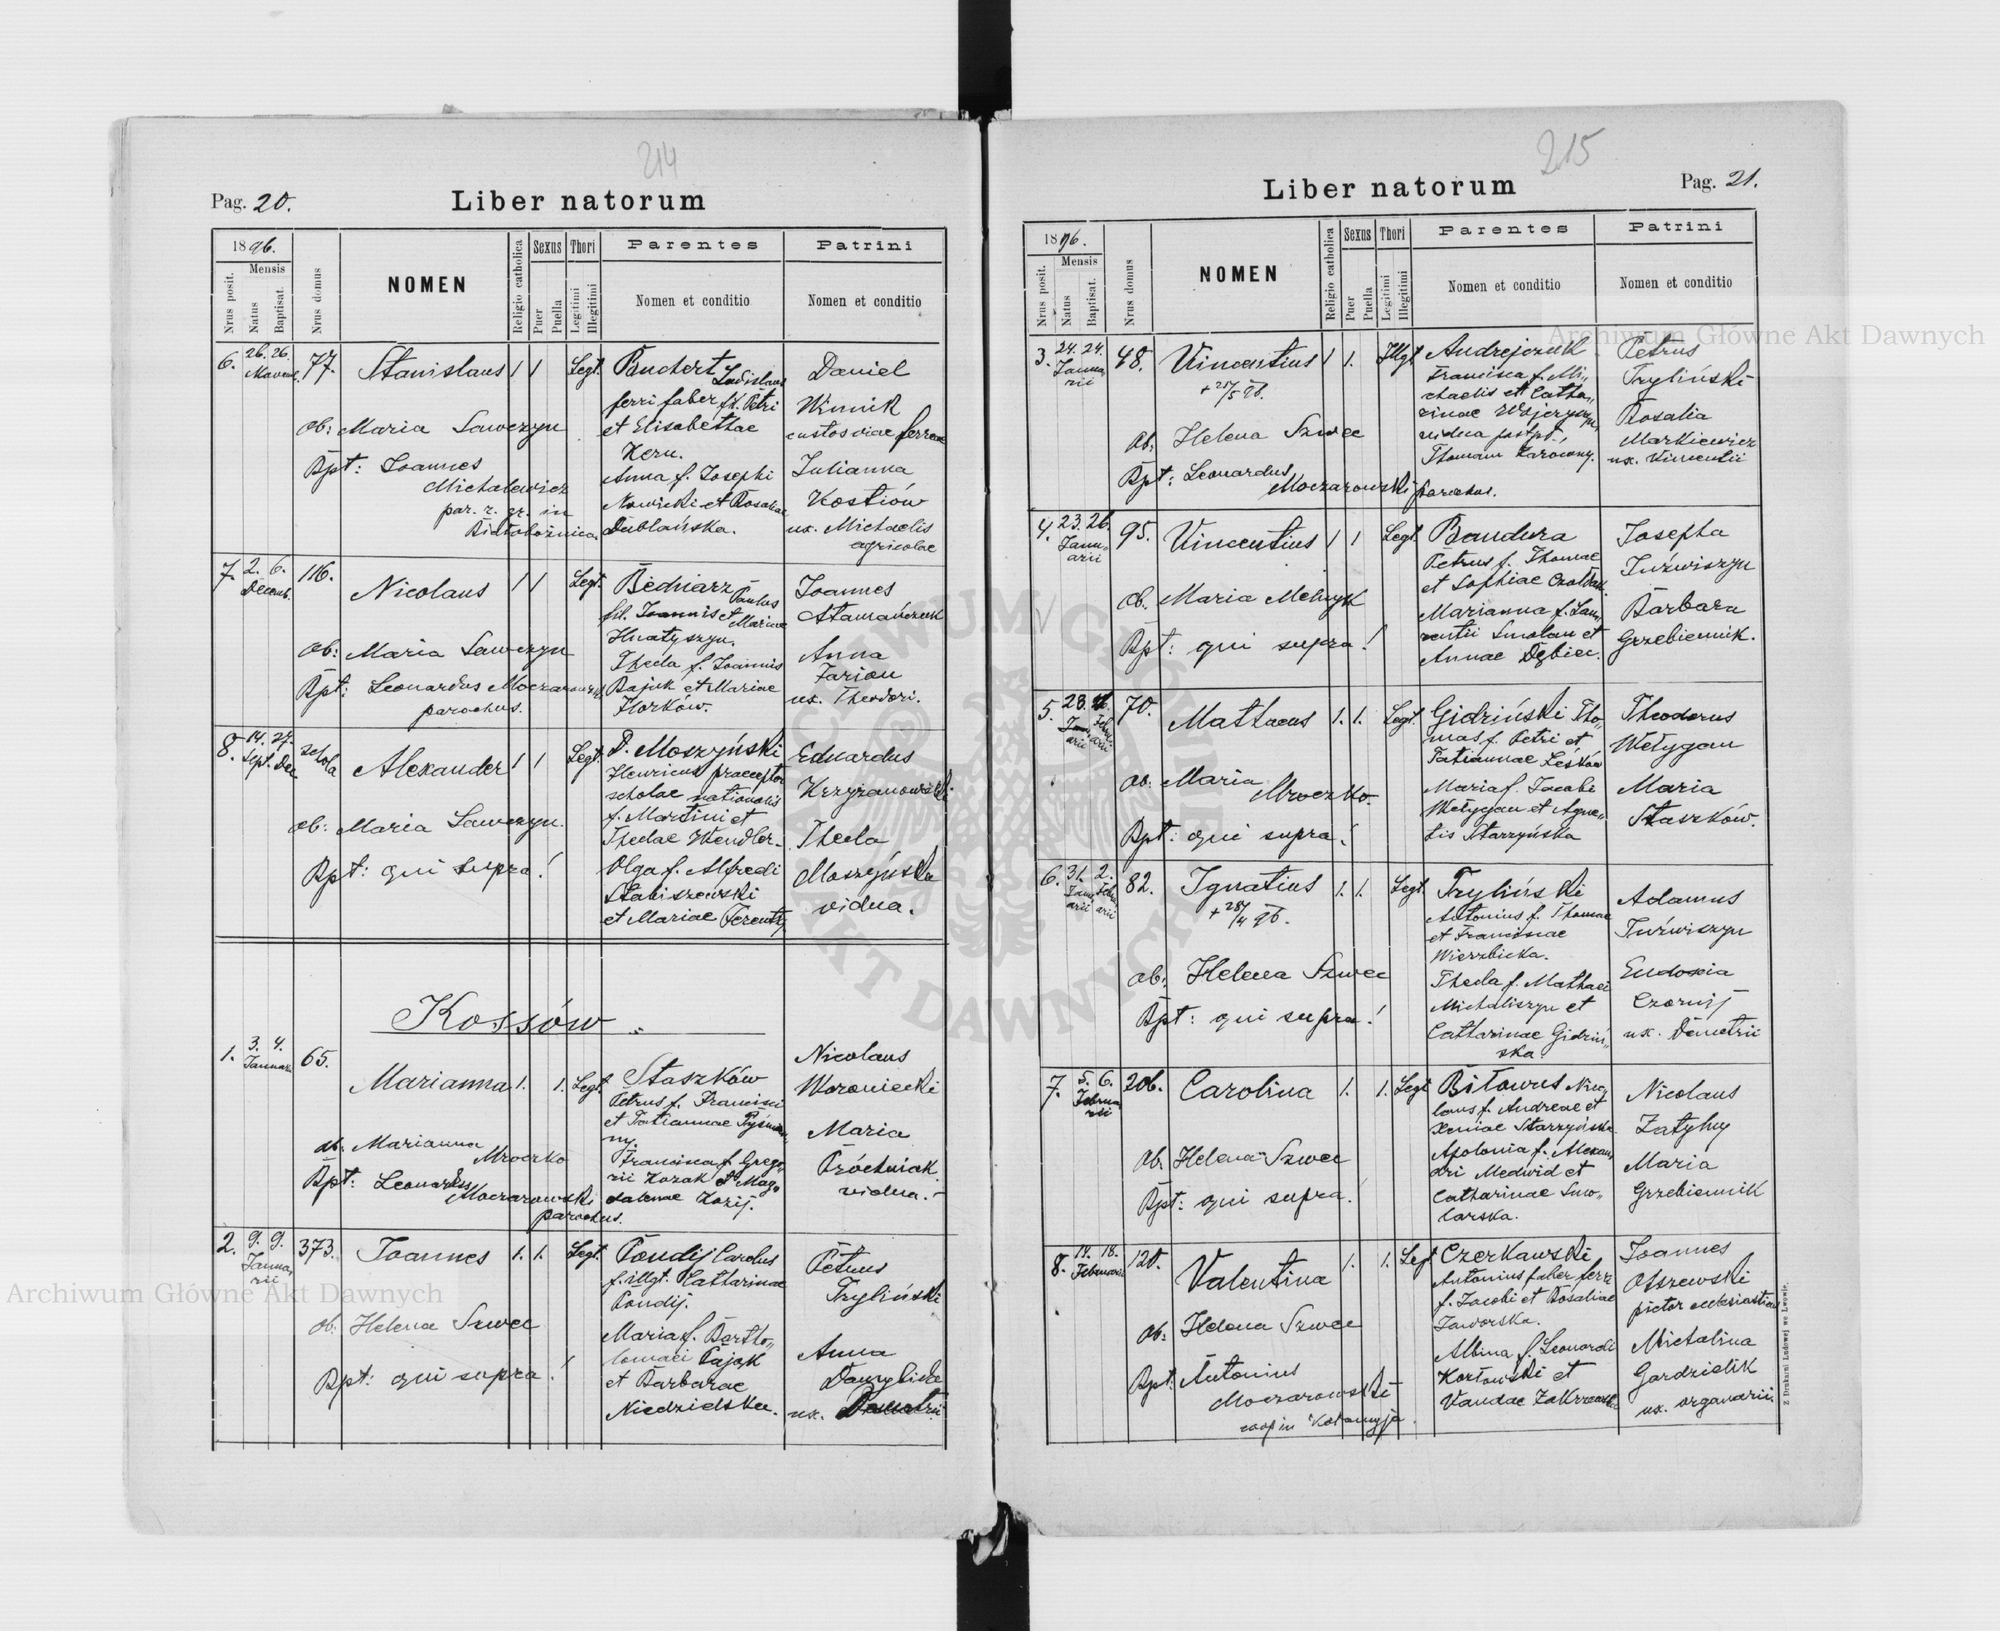 214
Pag. 20.
Liber natorum
1896.
Nrus posit.
Mensis
Natus
Baptisat.
Nrus domus
NOMEN
Religio catholica
Sexus
Puer
Puella
Thori
Legitimi
Illegitimi
Parentes
Nomen et conditio
Patrini
Nomen et conditio
6. 26. 26. 77. Stanislaus 1 1 Legt.
ob: Maria Sawczyn
Bpt: Joannes
Michalewicz
par. r. gr. in
Ladislaus
ferri faber fil. Petri
et Elisabethae
Kern.
Anna f. Josephi
Nowicki et Rosaliae
Dublańska.
Daniel
Winnik
custos viae ferreae
Julianna
Kostiów
ux. Michaelis
agricolae
7. 2. 6. Decemb. 116. Nicolaus 1 1 Legt.
ob: Maria Sawczyn
Bpt: Leonardus Moczarowski
parochus.
Bednarz Paulus
fil. Joannis et Mariae
Hnatyszyn.
Thecla f. Joannis
Bajuk et Mariae
Horków.
Joannes
Stamańczuk
Anna
Farion
ux. Theodori.
8. 14. 27. Sept. Dec. schola Alexander 1 1 Legt.
ob: Maria Sawczyn.
Bpt: qui supra!
P. Moszyński
Henricus praeceptor
scholae nationalis
f. Martini et
Theclae Wendler.
Olga f. Alfredi
Stabiszewski
et Mariae Ferentz
Eduardus
Krzyżanowski
Thecla
Moszyńska
vidua.
Kossów
1. 3. 4. Januar. 65. Marianna 1. 1. Legt.
ob: Marianna
Mroczko
Bpt: Leonardus
Moczarowski
parochus.
Staszków
Petrus f. Francisci
et Tatiannae
Francisca f. Grego-
rii Kozak et Mag-
dalenae Kozij.
Nicolaus
Woroniecki
Maria
Próchniak
vidua.
2. 9. 9. Janua-
rii 373. Joannes 1. 1. Legt.
ob: Helena Szwec
Bpt: qui supra!
Pondij Carolus
f. illgt. Catharinae
Pondij.
Maria f. Bartho-
lomaei Pająk
et Barbarae
Niedzielska.
Petrus
Tryliński
Anna
Danyliuk
ux. Demetrii
215
Liber natorum
Pag. 21.
1896.
Nrus posit.
Mensis
Natus
Baptisat.
Nrus domus
NOMEN
Religio catholica
Sexus
Puer
Puella
Thori
Legitimi
Illegitimi
Parentes
Nomen et conditio
Patrini
Nomen et conditio
3. 24. 24. Janua-
rii 48. Vincentius 1 1. Illgt.
ob: Helena Szwec
Bpt: Leonardus
Moczarowski parochus.
Andrejczuk
Francisca f. Mi-
chaelis et Catha-
rinae
vidua
Thomam
Petrus
Tryliński
Rosalia
Markiewicz
ux. Vincentii
4. 23. 26. Janu-
arii 95. Vincentius 1 1 Legt.
ob: Maria Melnyk
Bpt: qui supra!
Bandura
Petrus f. Thomae
et Sophiae
Marianna f. Lau-
rentii Smolan et
Annae Dębiec.
Josepha
Juźwiszyn
Barbara
Grzebiennik.
5. 28. Janu-
arii Febru-
arii 70. Mathaeus 1. 1. Legt.
ob: Maria
Mroczko.
Bpt: qui supra!
Gidziński Tho-
mas f. Petri et
Tatiannae Leśków
Maria f. Jacobi
Wełygan et Agne-
tis Starzyńska
Theodorus
Wełygan
Maria
Staszków.
6. 31. 2. Janu-
arii Febru-
arii 82. Ignatius 1. 1. Legt.
ob: Helena Szwec
Bpt: qui supra!
Tryliński
Antonius f. Thomae
et Franciscae
Wierzbicka.
Thecla f. Mathaei
Michaliszyn et
Catharinae Gidziń-
ska.
Adamus
Juźwiszyn
Eudoxia
Czornij
ux. Demetrii
7. 5. 6. Februa-
rii 206. Carolina 1. 1. Legt.
ob: Helena Szwec
Bpt: qui supra!
Biłowus Nico-
laus f. Andreae et
Xeniae Starzyńska.
Apolonia f. Alexan-
dri Medwid et
Catharinae Smo-
larska.
Nicolaus
Zatylny
Maria
Grzebiennik
8. 14. 18. Februarii 120. Valentina 1. 1. Legt
ob: Helena Szwec
Bpt: Antonius
Moczarowski
coop in Kołomyja.
Czerkawski
Antonius faber ferr.
f. Jacobi et Rosaliae
Jaworska.
Albina f. Leonardi
Kozłowski et
Vandae
Joannes
Olszewski
pictor ecclesiasticus
Michalina
Gardzielik
ux. organarii
Z Drukarni Ludowej we Lwowie.
Archiwum Główne Akt Dawnych
Archiwum Główne Akt Dawnych
ARCHIWUM GŁÓWNE AKT DAWNYCH